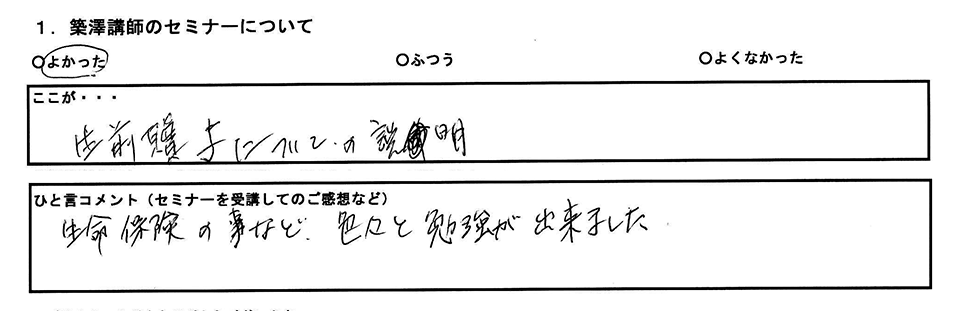 1．築澤講師のセミナーについて
○よかった ○ふつう ○よくなかった
ここが・・・
生前贈与についての説明
ひと言コメント（セミナーを受講してのご感想など）
生命保険の事など、色々と勉強が出来ました